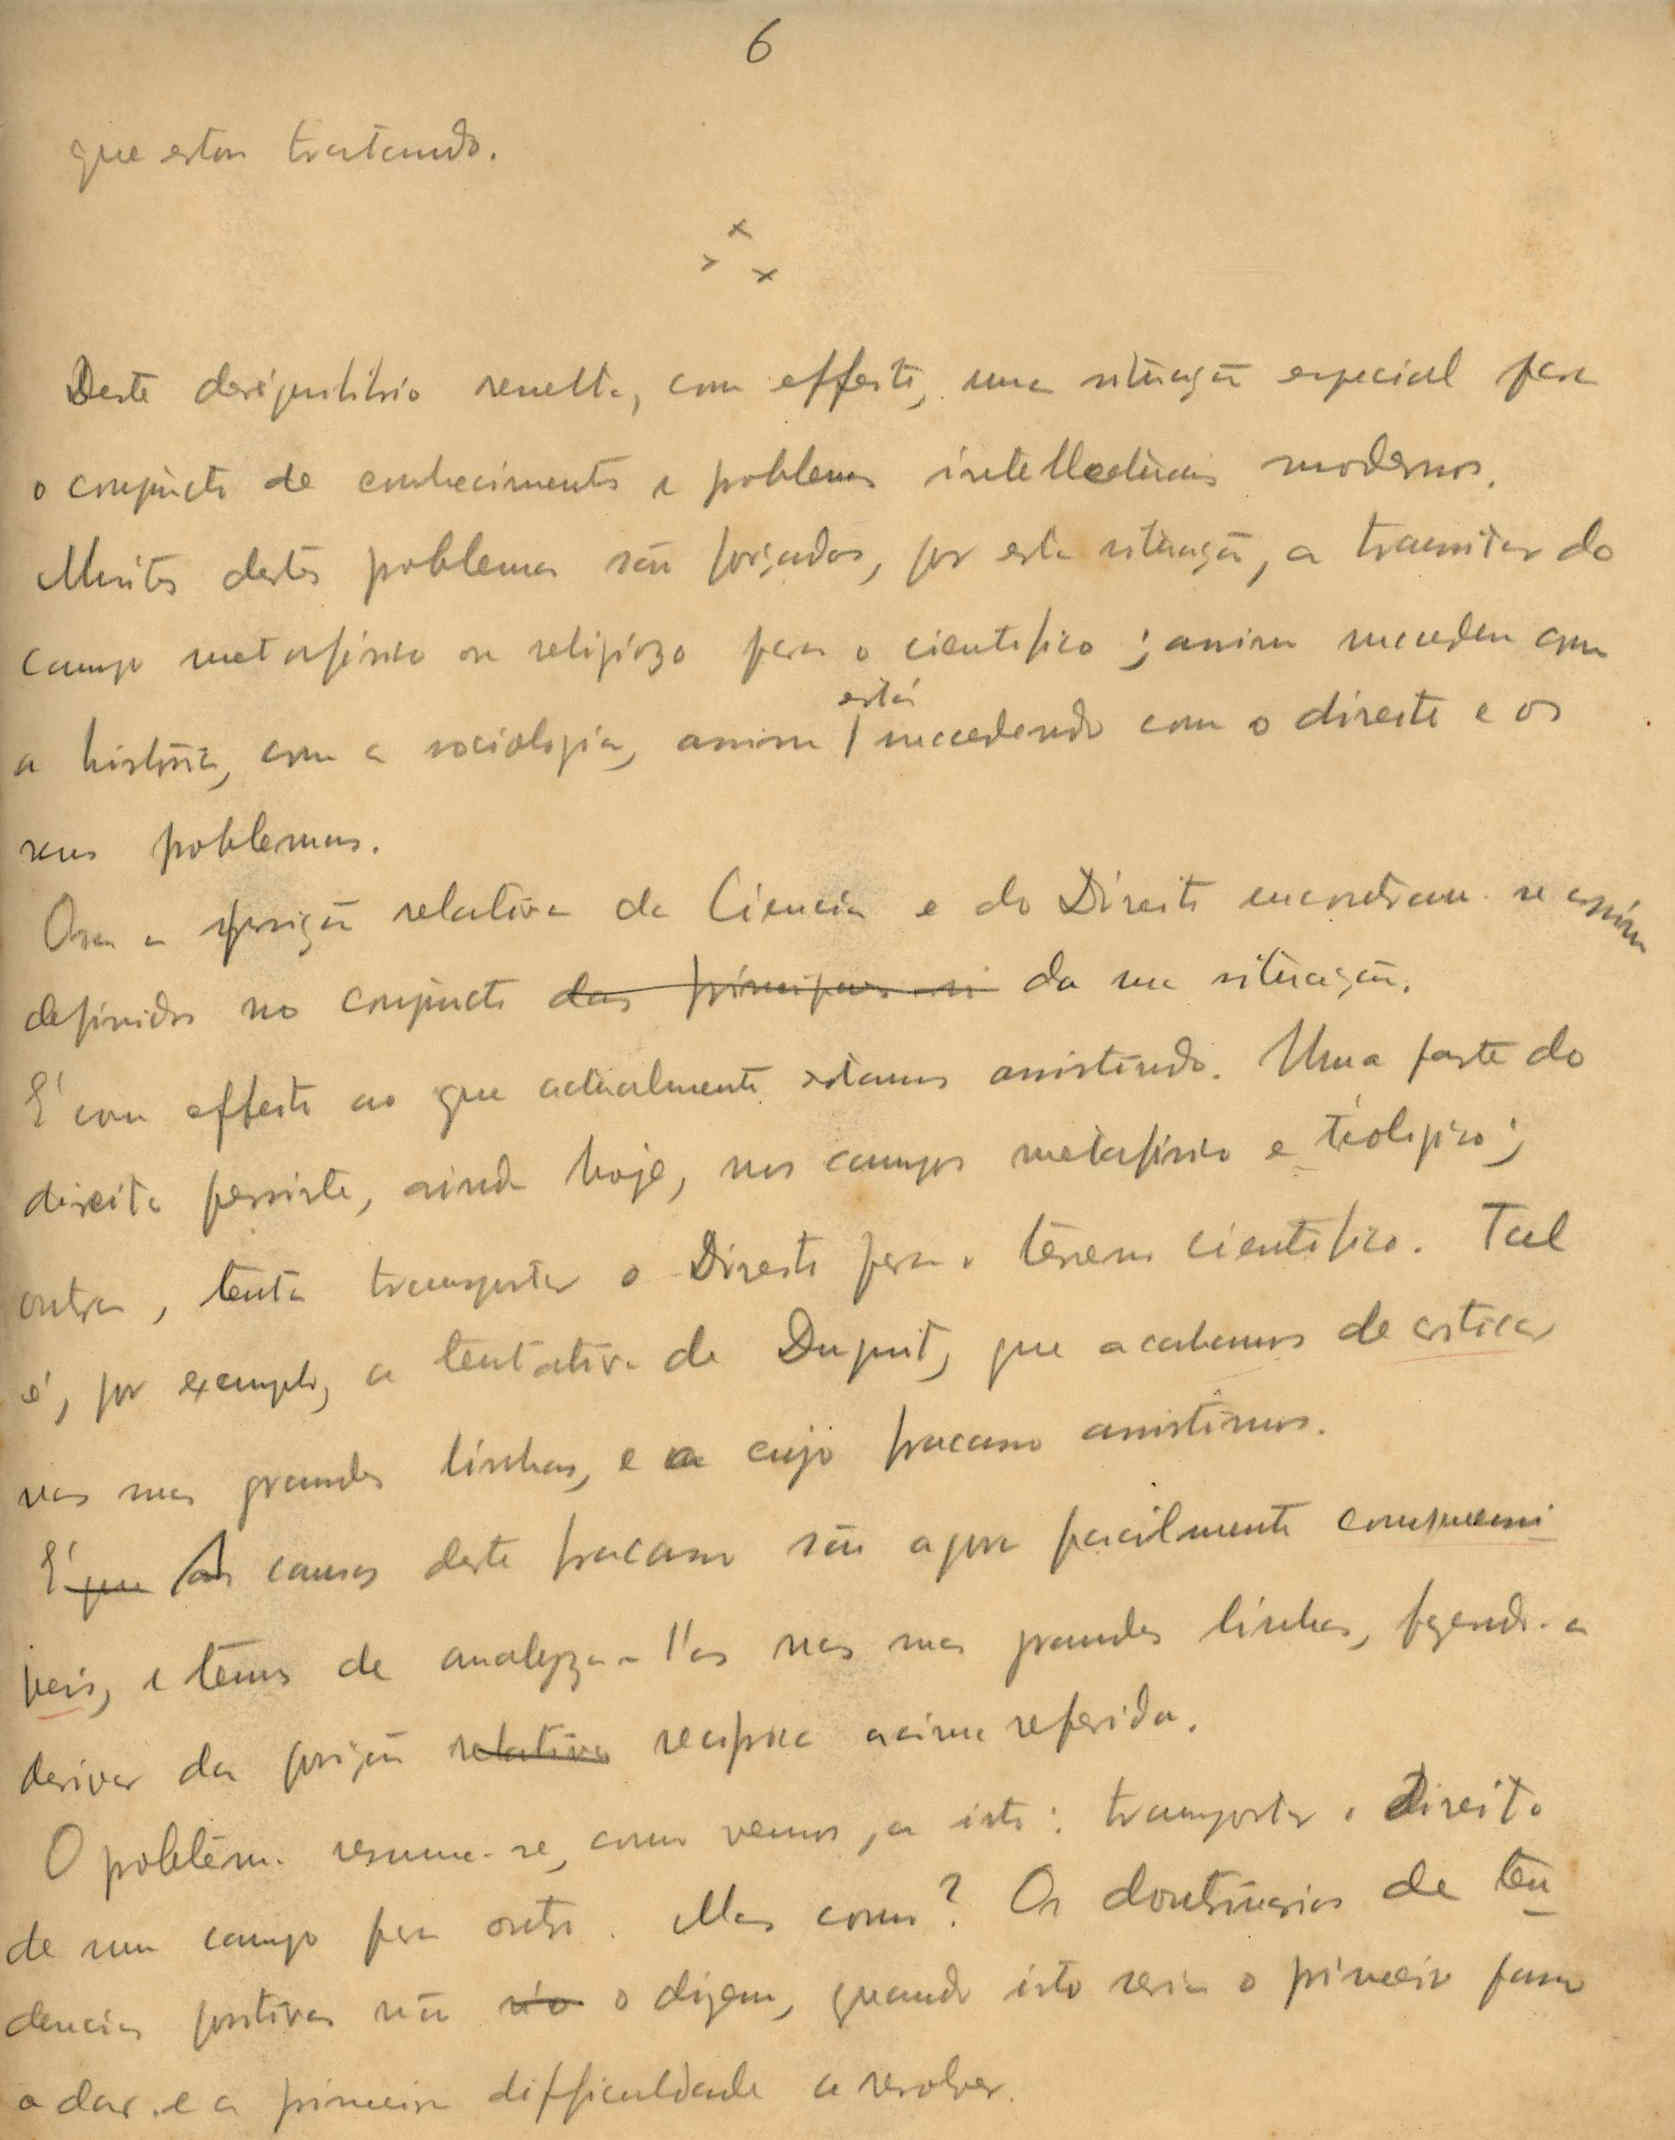 6
que estou tratando.
x
x x
Deste desiquilibrio resulta, com effeito, uma situação especial para
o conjuncto de conhecimentos e problemas intellectuais modernos.
Muitos destes problemas são forçados, por esta situação, a transitar do
campo metafísico ou religiozo para o cientifico; assim succedeu com
a história, com a sociologia, assim | está succedendo com o direito e os
seus problemas.
Ora a posição relativa da Ciencia e do Direito encontram-se assim
definidos no conjuncto das principaes si da sua situação.
É com effeito ao que actualmente estamos assistindo. Uma parte do
direito persiste, ainda hoje, nos campos metafísico e teológico;
outra, tenta transportar o Direito para o terreno cientifico. Tal
é, por exemplo, a tentativa de Duguit, que acabamos de criticar
nas suas grandes linhas, e a cujo fracasso assistimos.
É que As causas deste fracasso são agora facilmente comprehensi
veis, e temos de analyza-l'as nas suas grandes linhas, fazendo-as
derivar da posição relativa reciproca acima referida.
O problema resume-se, como vemos, a isto: transportar o Direito
de um campo para outro. Mas como? Os doutrinarios de ten
dencias positivas não não o dizem, quando isto seria o primeiro passo
a dar e a primeira difficuldade a resolver.